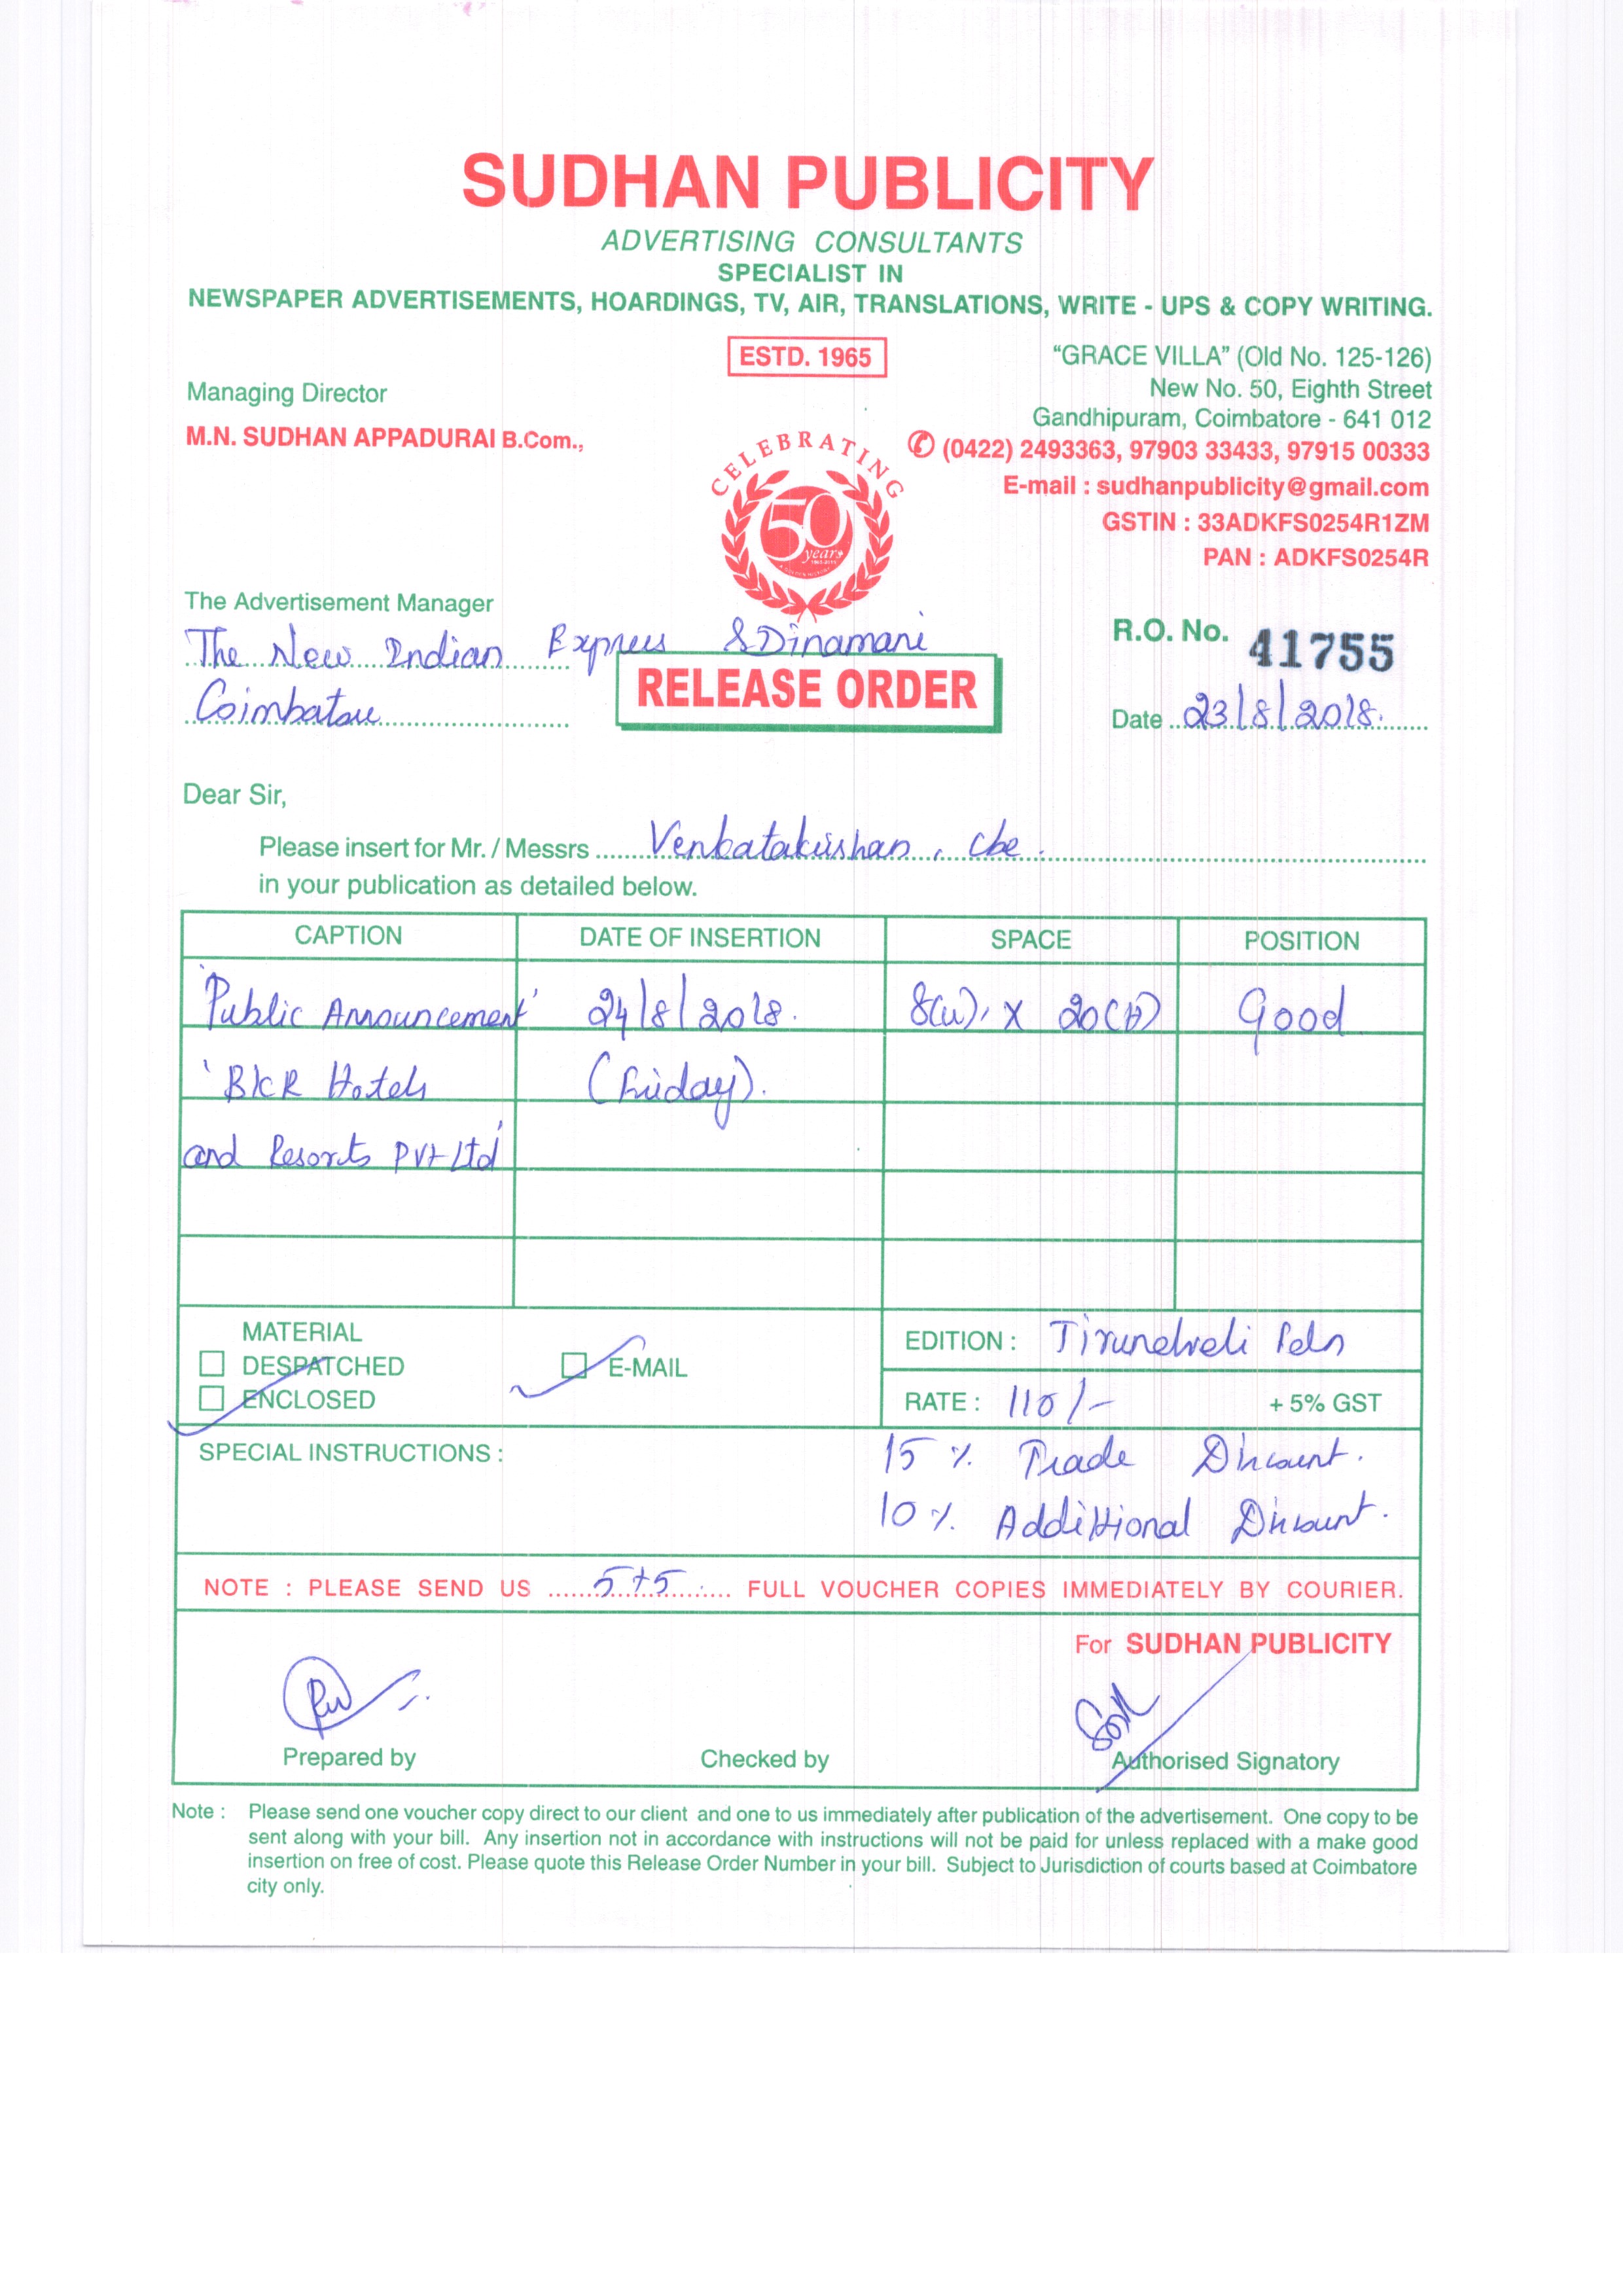 SUDHAN PUBLICITY
ADVERTISING CONSULTANTS
SPECIALIST IN
NEWSPAPER ADVERTISEMENTS, HOARDINGS, TV, AIR, TRANSLATIONS, WRITE - UPS & COPY WRITING.
ESTD. 1965
"GRACE VILLA" (Old No. 125-126)
New No. 50, Eighth Street
Gandhipuram, Coimbatore - 641 012
✆ (0422) 2493363, 97903 33433, 97915 00333
E-mail : sudhanpublicity@gmail.com
GSTIN : 33ADKFS0254R1ZM
PAN : ADKFS0254R
Managing Director
M.N. SUDHAN APPADURAI B.Com.,
CELEBRATING
50
years
The Advertisement Manager
The New Indian Express & Dinamani
Coimbatore
RELEASE ORDER
R.O. No. 41755
Date 23/8/2018.
Dear Sir,
Please insert for Mr. / Messrs Venkatakrishan, cbe.
in your publication as detailed below.
CAPTION DATE OF INSERTION SPACE POSITION
'Public Announcement' 24/8/2018. 8(w) x 20(h) Good
'BKR Hotels (Friday).
and Resorts Pvt Ltd'
MATERIAL
DESPATCHED E-MAIL
ENCLOSED
EDITION : Tirunelveli
RATE : 110/- + 5% GST
SPECIAL INSTRUCTIONS : 15 % Trade Discount.
10 % Additional Discount.
NOTE : PLEASE SEND US 5+5 FULL VOUCHER COPIES IMMEDIATELY BY COURIER.
For SUDHAN PUBLICITY
Prepared by Checked by Authorised Signatory
Note : Please send one voucher copy direct to our client and one to us immediately after publication of the advertisement. One copy to be
sent along with your bill. Any insertion not in accordance with instructions will not be paid for unless replaced with a make good
insertion on free of cost. Please quote this Release Order Number in your bill. Subject to Jurisdiction of courts based at Coimbatore
city only.